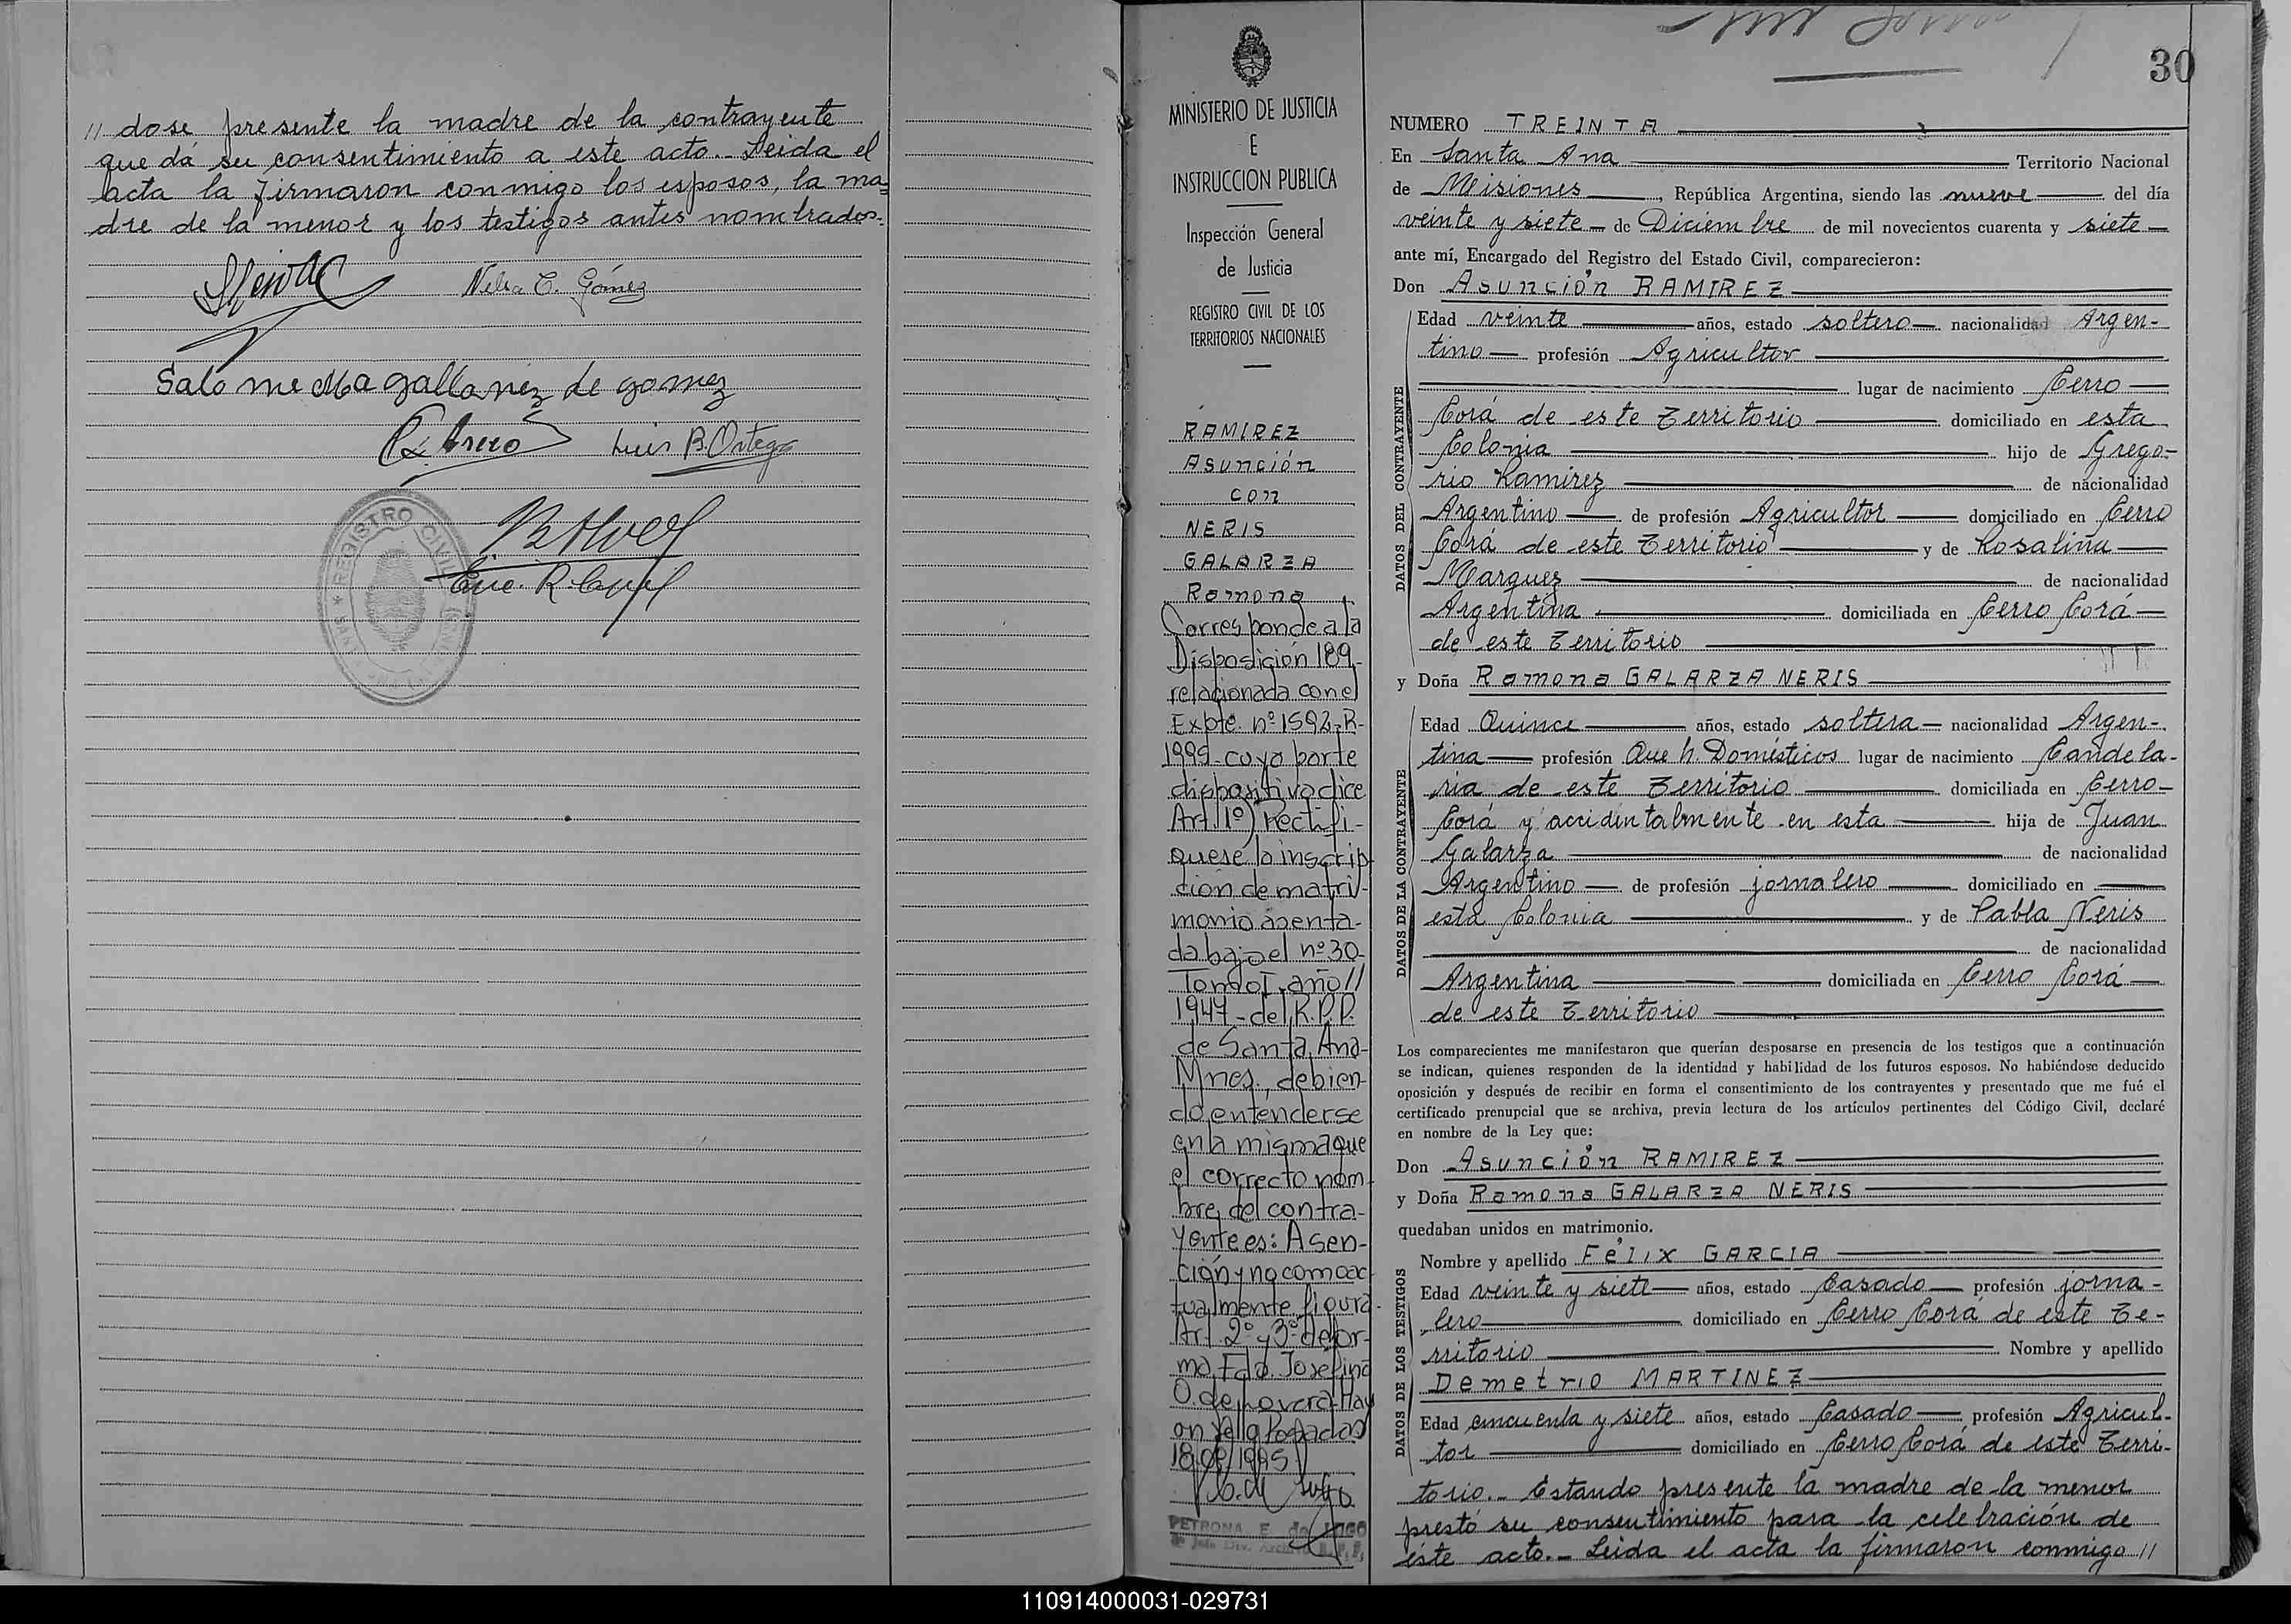 // dose presente la madre de la contrayente
que dá su consentimiento a este acto.- Leida el
acta la firmaron conmigo los esposos, la ma=
dre de la menor y los testigos antes nombrados.-
Nelia C. Gómez
Salome Magallanez de gomez
Luis B. Ortega
Enc. R. Civil
REGISTRO CIVIL
30
MINISTERIO DE JUSTICIA
E
INSTRUCCION PUBLICA
Inspección General
de Justicia
REGISTRO CIVIL DE LOS
TERRITORIOS NACIONALES
RAMIREZ
Asunción
con
NERIS
GALARZA
Ramona
Corresponde a la
Disposición 189-
relacionada con el
Expte. nº 1592-R-
1995- cuya parte
dispositiva dice
Art. 1º) Rectifi-
quese la inscrip-
ción de matri-
monio asenta-
da bajo el nº 30-
Tomo I- año//
1947- del R.P.P.
de Santa Ana-
Mnes., debien-
do entenderse
en la misma que
el correcto nom-
bre del contra-
yente es: Asen-
ción y no como ac-
tualmente figura-
Art. 2º y 3º de for-
ma Fdo. Josefina
O. de Lovera. Hay
un sello Posadas
18/09/1995
PETRONA E. de LUGO
NUMERO TREINTA
En Santa Ana Territorio Nacional
de Misiones, República Argentina, siendo las nueve del día
veinte y siete - de Diciembre de mil novecientos cuarenta y siete -
ante mí, Encargado del Registro del Estado Civil, comparecieron:
Don Asunción RAMIREZ
DATOS DEL CONTRAYENTE
Edad veinte años, estado soltero nacionalidad Argen-
tino profesión Agricultor
lugar de nacimiento Cerro
Corá de este Territorio domiciliado en esta
Colonia hijo de Grego-
rio Ramirez de nacionalidad
Argentino de profesión Agricultor domiciliado en Cerro
Corá de este Territorio y de Rosalina
Marquez de nacionalidad
Argentina domiciliada en Cerro Corá
de este Territorio
y Doña Ramona GALARZA NERIS
DATOS DE LA CONTRAYENTE
Edad Quince años, estado soltera nacionalidad Argen-
tina profesión Que h. Domésticos lugar de nacimiento Candela-
ria de este Territorio domiciliada en Cerro
Corá y accidentalmente en esta hija de Juan
Galarza de nacionalidad
Argentino de profesión jornalero domiciliado en
esta Colonia y de Pabla Neris
de nacionalidad
Argentina domiciliada en Cerro Corá
de este Territorio
Los comparecientes me manifestaron que querían desposarse en presencia de los testigos que a continuación
se indican, quienes responden de la identidad y habilidad de los futuros esposos. No habiéndose deducido
oposición y después de recibir en forma el consentimiento de los contrayentes y presentado que me fué el
certificado prenupcial que se archiva, previa lectura de los artículos pertinentes del Código Civil, declaré
en nombre de la Ley que:
Don Asunción RAMIREZ
y Doña Ramona GALARZA NERIS
quedaban unidos en matrimonio.
DATOS DE LOS TESTIGOS
Nombre y apellido Félix GARCIA
Edad veinte y siete años, estado Casado profesión jorna-
lero domiciliado en Cerro Corá de este Te-
rritorio Nombre y apellido
Demetrio MARTINEZ
Edad cincuenta y siete años, estado Casado profesión Agricul-
tor domiciliado en Cerro Corá de este Terri-
torio.- Estando presente la madre de la menor
prestó su consentimiento para la celebración de
éste acto.- Leida el acta la firmaron conmigo //
110914000031-029731